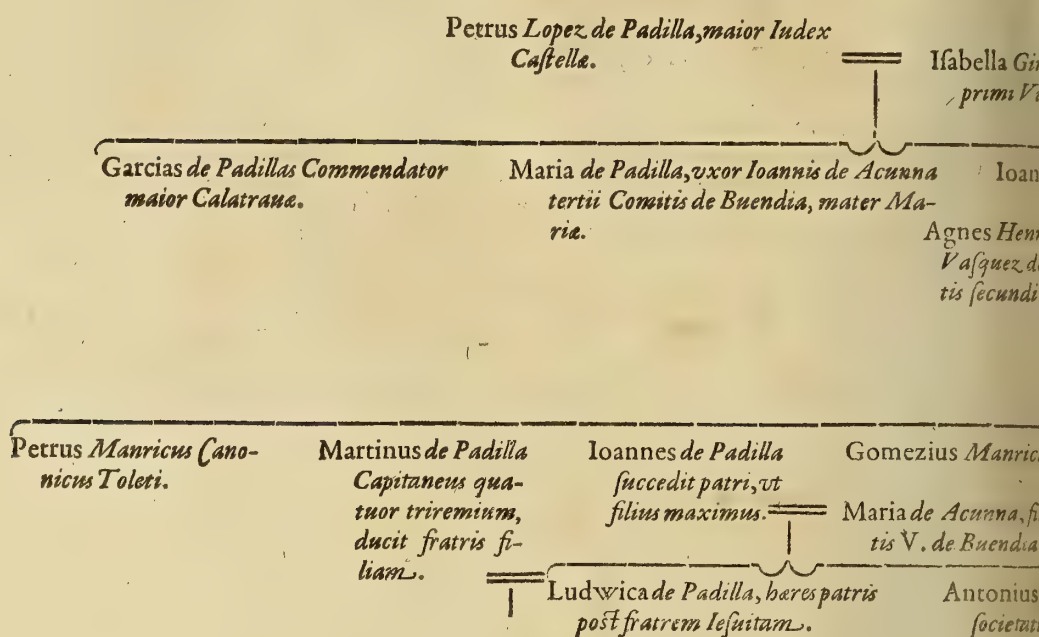 Petrus Lopez de Padilla, maior Iudex
Caſtellæ.
Iſabella
primi
Garcias de Padillas Commendator
maior Calatrauæ.
Maria de Padilla, vxor Ioannis de Acunna
tertii Comitis de Buendia, mater Ma-
riæ.
Agnes
Vaſquez
tis ſecundi
Petrus Manricus Cano-
nicus Toleti.
Martinus de Padilla
Capitaneus qua-
tuor triremium,
ducit fratris fi-
liam.
Ioannes de Padilla
ſuccedit patri, vt
filius maximus.
Gomezius
Maria de Acunna,
tis V. de Buendia
Ludwica de Padilla, hæres patris
poſt fratrem Ieſuitam.
Antonius